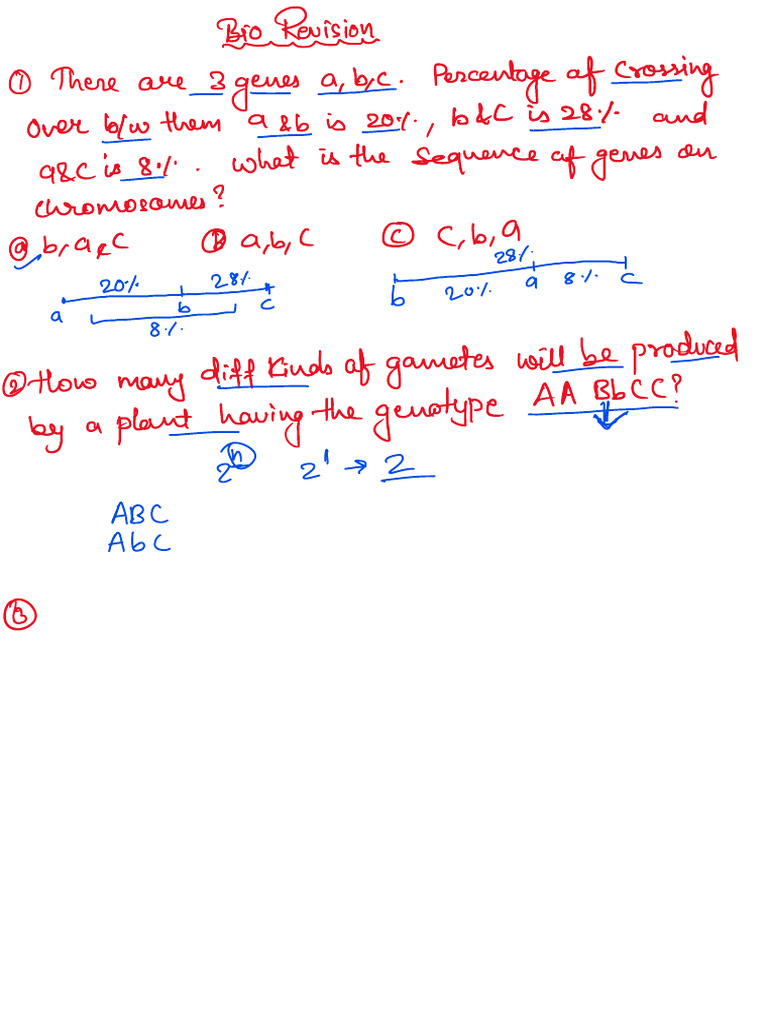 Bio Revision
① There are 3 genes a, b, c. Percentage of crossing
over b/w them a & b is 20%, b & c is 28% and
a & c is 8%. What is the sequence of genes on
chromosomes?
ⓐ b, a, c ⓑ a, b, c ⓒ c, b, a
20% 28%
a b c
8%
28%
b 20% a 8% c
② How many diff kinds of gametes will be produced
by a plant having the genotype AA BbCC?
2ⁿ 2¹ → 2
ABC
AbC
③